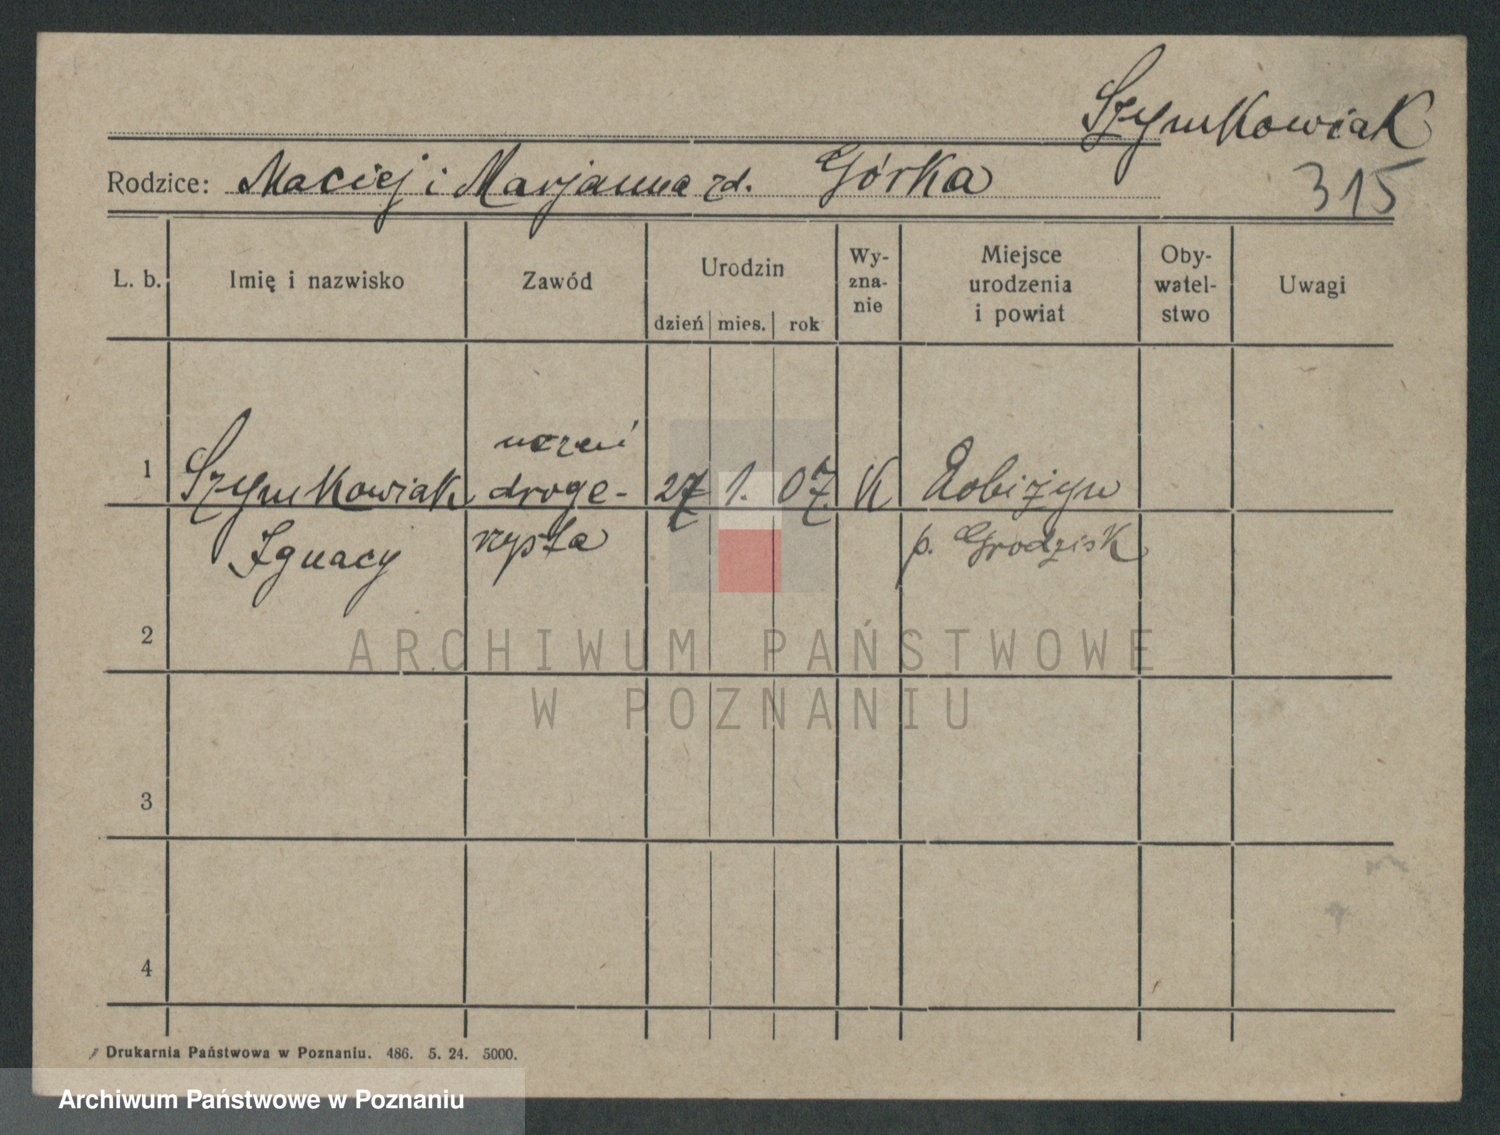 Szymkowiak
Rodzice: Maciej i Marjanna zd. Górka
315
L. b.
Imię i nazwisko
Zawód
Urodzin
dzień mies. rok
Wy-
zna-
nie
Miejsce
urodzenia
i powiat
Oby-
watel-
stwo
Uwagi
1
Szymkowiak
Ignacy
uczeń
droge-
rzysta
27 1. 07.
K
p. Grodzisk
2
3
4
ARCHIWUM PAŃSTWOWE
W POZNANIU
Drukarnia Państwowa w Poznaniu. 486. 5. 24. 5000.
Archiwum Państwowe w Poznaniu